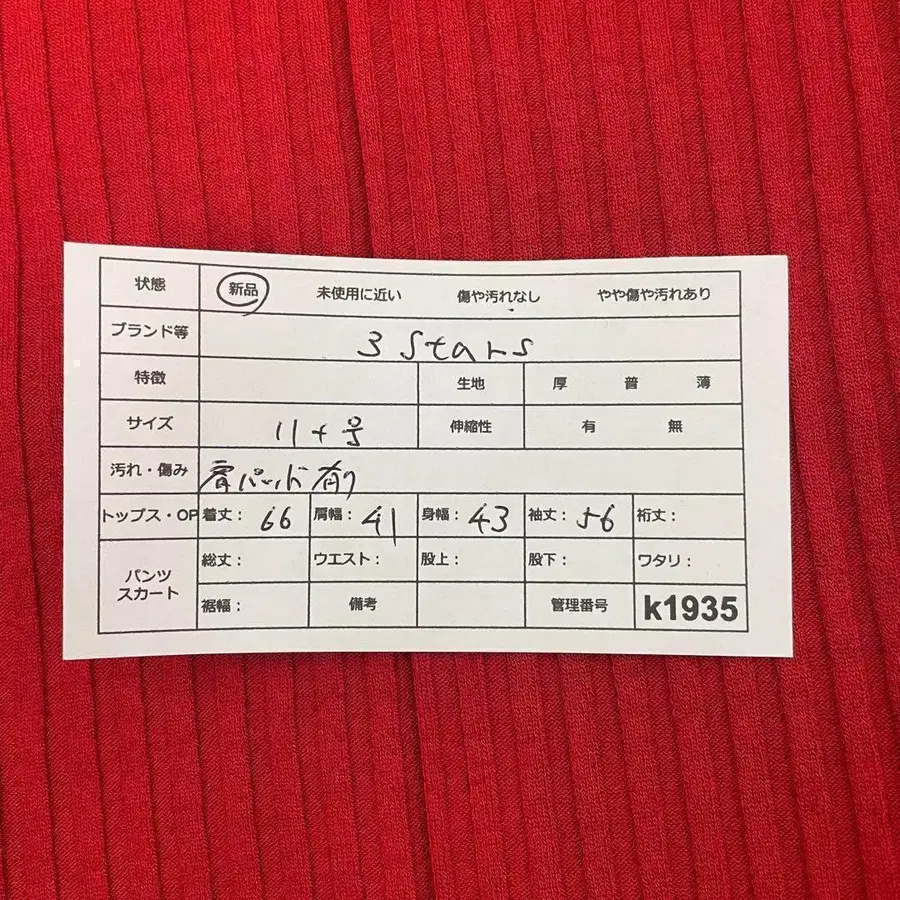 状態 新品 未使用に近い 傷や汚れなし やや傷や汚れあり
ブランド等 3 Stars
特徴 生地 厚 普 薄
サイズ 11+号 伸縮性 有 無
汚れ・傷み 肩パット有り
トップス・OP 着丈: 66 肩幅: 41 身幅: 43 袖丈: 56 裄丈:
パンツ スカート 総丈: ウエスト: 股上: 股下: ワタリ:
裾幅: 備考 管理番号 k1935